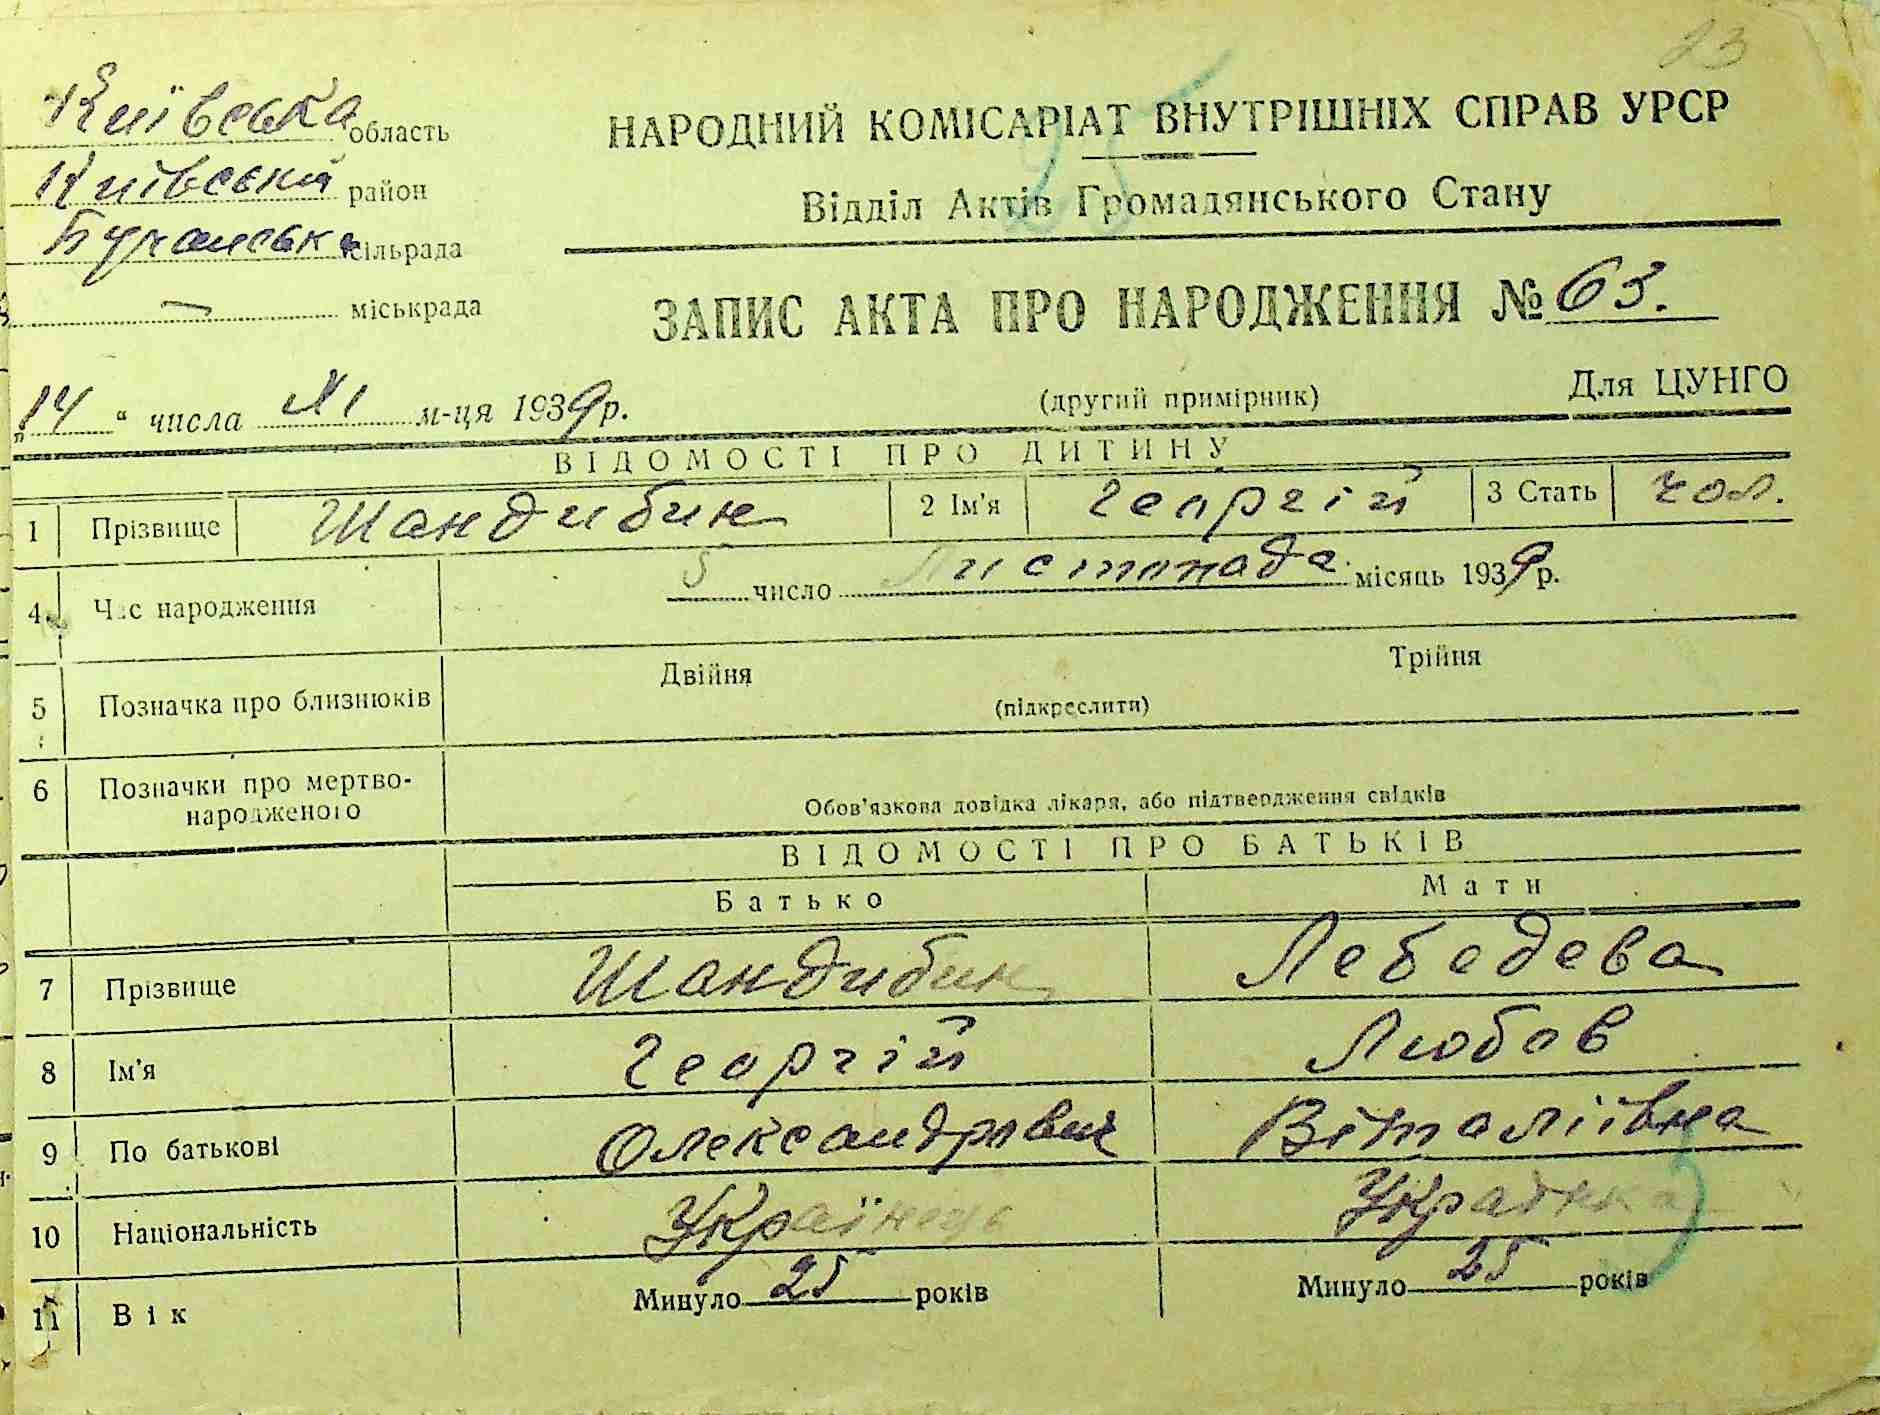 23
Київська область
Київський район
Бучанська сільрада
— міськрада
НАРОДНИЙ КОМІСАРІАТ ВНУТРІШНІХ СПРАВ УРСР
Відділ Актів Громадянського Стану
ЗАПИС АКТА ПРО НАРОДЖЕННЯ № 63.
„14 “ числа XI м-ця 1939 р.
(другий примірник)
Для ЦУНГО
ВІДОМОСТІ ПРО ДИТИНУ
1 Прізвище Шандибин 2 Ім'я Георгій 3 Стать чол.
4 Час народження 5 число Листопада місяць 1939 р.
5 Позначка про близнюків Двійня Трійня
(підкреслити)
6 Позначки про мертво-
народженого Обов'язкова довідка лікаря, або підтвердження свідків
ВІДОМОСТІ ПРО БАТЬКІВ
Батько Мати
7 Прізвище Шандибин Лебедева
8 Ім'я Георгій Любов
9 По батькові Олександрович Віталіївна
10 Національність Українець Українка
11 Вік Минуло 25 років Минуло 25 років